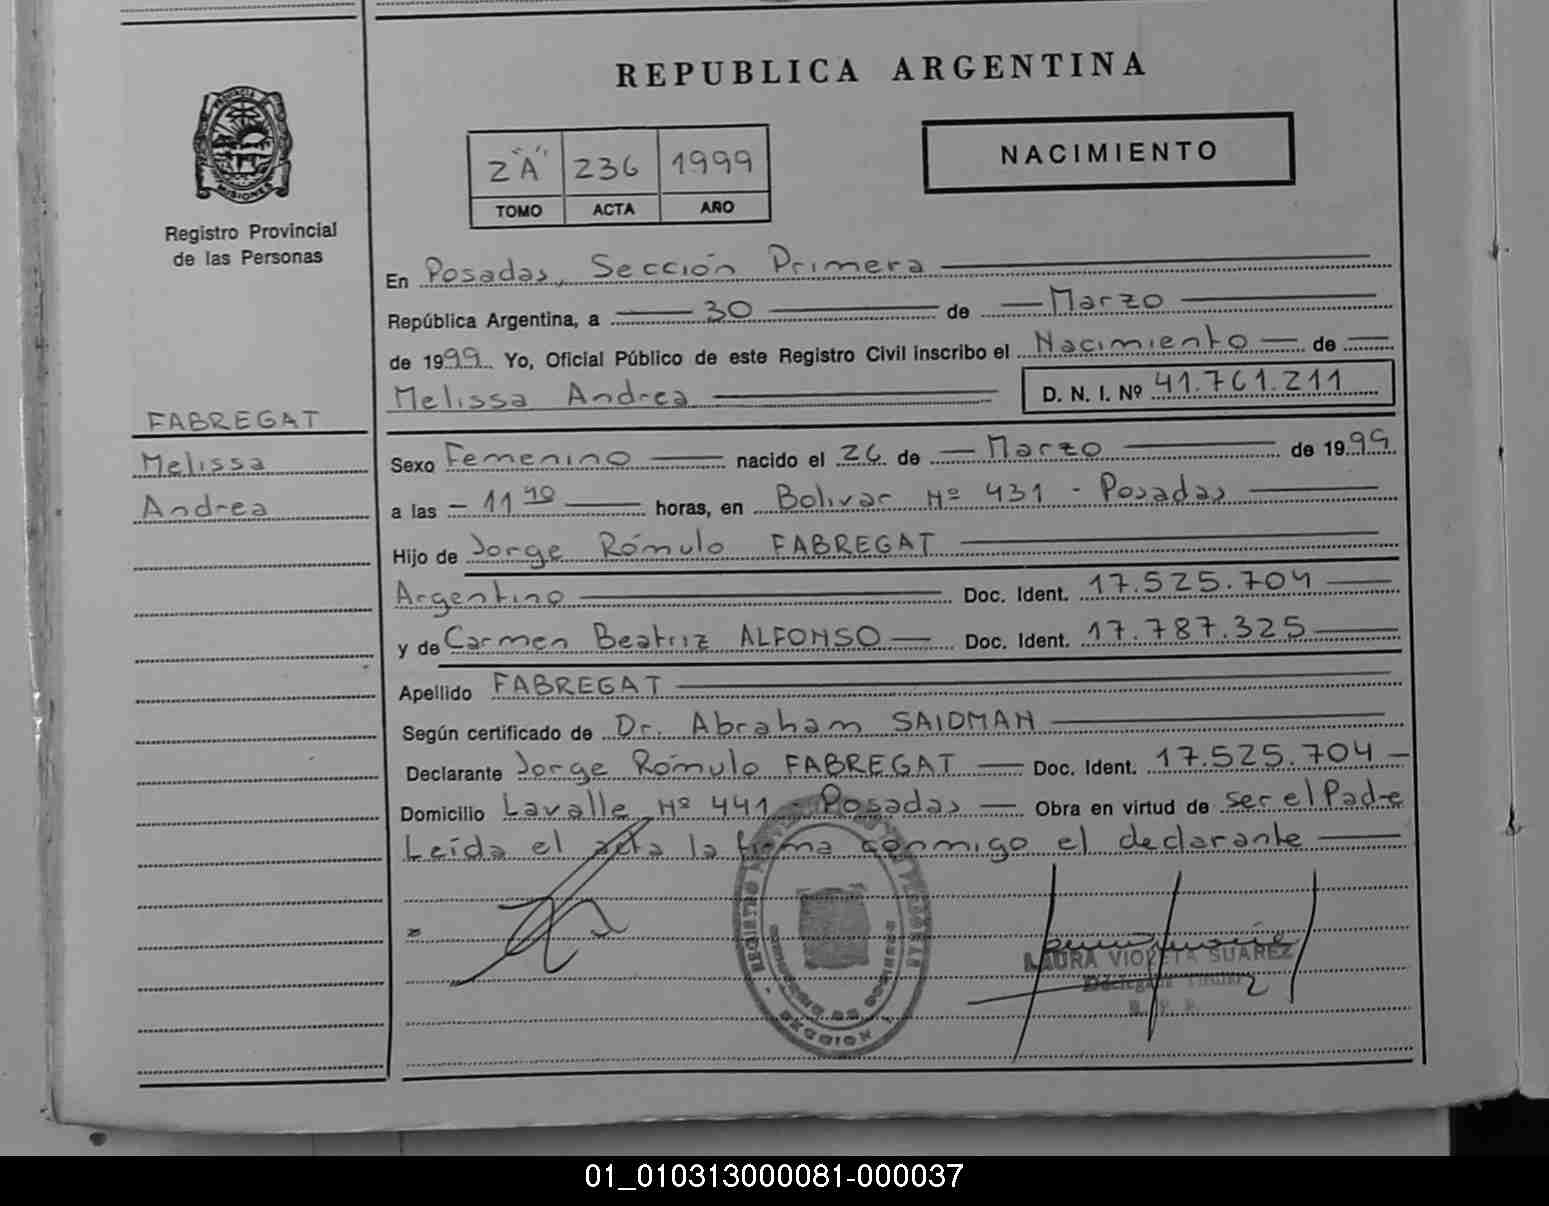 REPUBLICA ARGENTINA
PROVINCIA DE
MISIONES
Registro Provincial
de las Personas
2 "A" 236 1999
TOMO ACTA AÑO
NACIMIENTO
En Posadas, Sección Primera
República Argentina, a 30 de Marzo
de 1999. Yo, Oficial Público de este Registro Civil inscribo el Nacimiento de
Melissa Andrea D. N. I. Nº 41.761.211
FABREGAT
Melissa
Andrea
Sexo Femenino nacido el 26 de Marzo de 1999
a las 11 40 horas, en Bolivar Nº 431 - Posadas
Hijo de Jorge Rómulo FABREGAT
Argentino Doc. Ident. 17.525.704
y de Carmen Beatriz ALFONSO Doc. Ident. 17.787.325
Apellido FABREGAT
Según certificado de Dr. Abraham SAIDMAN
Declarante Jorge Rómulo FABREGAT Doc. Ident. 17.525.704
Domicilio Lavalle Nº 441 - Posadas Obra en virtud de ser el Padre
Leída el acta la firma conmigo el declarante
REGISTRO
SECCION 1
LAURA VIOLETA SUAREZ
Delegada Titular
R. P. P.
01_010313000081-000037